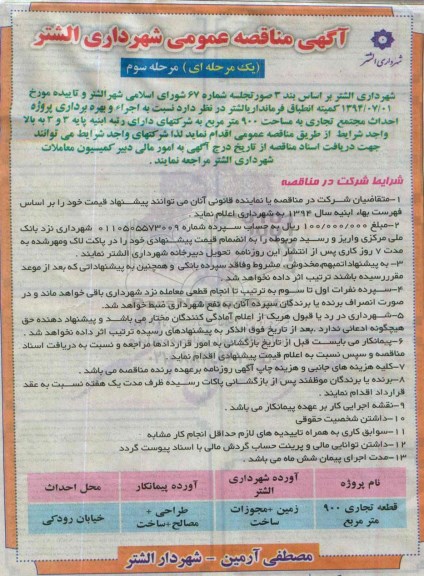 آگهی مناقصه عمومی شهرداری الشتر
شهرداری الشتر
(یک مرحله ای) مرحله سوم
شهرداری الشتر بر اساس بند ۳ صورتجلسه شماره ۶۷ شورای اسلامی شهر الشتر و تاییده مورخ
۱۳۹۴/۰۷/۰۱ کمیته انطباق فرمانداریالشتر در نظر دارد نسبت به اجراء و بهره برداری پروژه
احداث مجتمع تجاری به مساحت ۹۰۰ متر مربع به شرکتهای دارای رتبه ابنیه پایه ۳ و ۳ به بالا
واجد شرایط از طریق مناقصه عمومی اقدام نماید لذا شرکتهای واجد شرایط می توانند
جهت دریافت اسناد مناقصه از تاریخ درج آگهی به امور مالی دبیر کمیسیون معاملات
شهرداری الشتر مراجعه نمایند .
شرایط شرکت در مناقصه
۱-متقاضیان شرکت در مناقصه یا نماینده قانونی آنان می توانند پیشنهاد قیمت خود را بر اساس
فهرست بهاء ابنیه سال ۱۳۹۴ به شهرداری اعلام نماید .
۲-مبلغ ۱۰۰/۰۰۰/۰۰۰ ریال به حساب سپرده شماره ۰۱۱۰۵۰۵۵۷۳۰۰۹ شهرداری نزد بانک
ملی مرکزی واریز و رسید مربوطه را به انضمام قیمت پیشنهادی خود را در پاکت لاک ومهرشده به
مدت ۷ روز کاری پس از انتشار این روزنامه تحویل دبیرخانه شهرداری الشتر نمایند .
۳- به پیشنهاداتمبهم مخدوش، مشروط وفاقد سپرده بانکی و همچنین به پیشنهاداتی که بعد از موعد
مقرررسیده باشند ترتیب اثر داده نخواهد شد .
۴-سپرده نفرات اول تا سوم به ترتیب تا انجام قطعی معامله نزد شهرداری باقی خواهد ماند و در
صورت انصراف برنده یا برندگان سپرده آنان به نفع شهرداری ضبط خواهد شد.
۵-شهرداری در رد یا قبول هریک از اعلام آمادگی کنندگان مختار می باشد و پیشنهاد دهنده حق
هیچگونه ادعائی ندارد .بعد از تاریخ فوق الذکر به پیشنهادهای رسیده ترتیب اثر داده نخواهد شد .
۶-پیمانکار می بایست قبل از تاریخ بازگشائی به امور قراردادها مراجعه و نسبت به دریافت اسناد
مناقصه و سپس نسبت به اعلام قیمت پیشنهادی اقدام نماید
۷-کلیه هزینه های جانبی و هزینه چاپ آگهی روزنامه برعهده برنده مناقصه می باشد .
۸-برنده یا برندگان موظفند پس از بازگشائی پاکات رسیده ظرف مدت یک هفته نسبت به عقد
قرارداد اقدام نمایند .
۹-نقشه اجرایی کار بر عهده پیمانکار می باشد .
۱۰-داشتن شخصیت حقوقی
۱۱-سوابق کاری به همراه تاییدیه های لازم حداقل انجام کار مشابه
۱۲-داشتن توانایی مالی و پرینت حساب گردش مالی با اسناد پیوست گردد
۱۳-مدت اجرای پیمان شش ماه می باشد .
نام پروژه آورده شهرداری الشتر آورده پیمانکار محل احداث
قطعه تجاری ۹۰۰ متر مربع زمین +مجوزات ساخت طراحی + مصالح+ساخت خیابان رودکی
مصطفی آرمین - شهردار الشتر